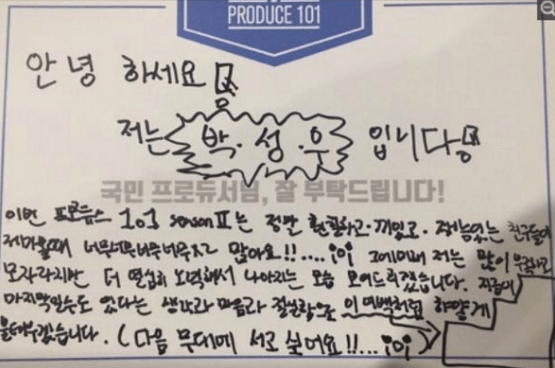 PRODUCE 101
안녕 하세요
저는 박.성.우 입니다
국민 프로듀서님, 잘 부탁드립니다!
이번 프로듀스 101 season II는 정말 훈훈하고.끼있고.재능있는 친구들이
너무너무너무너무 많아요!!.... 저는 많이
모자라지만 더 열심히 노력해서 나아지는 모습 보여드리겠습니다. 지금이
마지막일수도 있다는 생각과 마음과 절실함으로 이 여백처럼 하얗게
불태우겠습니다. (다음 무대에 서고 싶어요!!...